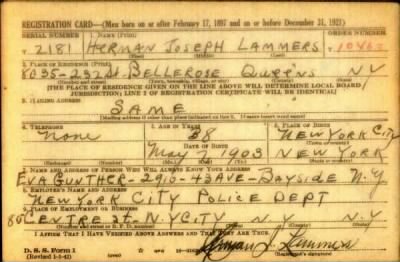 REGISTRATION CARD—(Men born on or after February 17, 1897 and on or before December 31, 1921)
SERIAL NUMBER 1. NAME (Print) ORDER NUMBER
T 2181 HERMAN JOSEPH LAMMERS 10463
(First) (Middle) (Last)
2. PLACE OF RESIDENCE (Print)
8035-232 St. BELLEROSE QUEENS N Y
(Number and street) (Town, township, village, or city) (County) (State)
[THE PLACE OF RESIDENCE GIVEN ON THE LINE ABOVE WILL DETERMINE LOCAL BOARD
JURISDICTION; LINE 2 OF REGISTRATION CERTIFICATE WILL BE IDENTICAL]
3. MAILING ADDRESS
SAME
[Mailing address if other than place indicated on line 2. If same insert word same]
4. TELEPHONE 5. AGE IN YEARS 6. PLACE OF BIRTH
None 38 NEW YORK CITY
DATE OF BIRTH
May 7 1903 NEW YORK
(Exchange) (Number) (Mo.) (Day) (Yr.) (State or country)
7. NAME AND ADDRESS OF PERSON WHO WILL ALWAYS KNOW YOUR ADDRESS
EVA GUNTHER-2910-43 AVE-BAYSIDE N.Y
8. EMPLOYER'S NAME AND ADDRESS
NEW YORK CITY POLICE DEPT
9. PLACE OF EMPLOYMENT OR BUSINESS
80 CENTRE St N.Y CITY N Y N.Y
(Number and street or R. F. D. number) (Town) (County) (State)
I AFFIRM THAT I HAVE VERIFIED ABOVE ANSWERS AND THAT THEY ARE TRUE.
D. S. S. Form 1
(Revised 1-5-42) (over) Herman J. Lammers
(Registrant's signature)